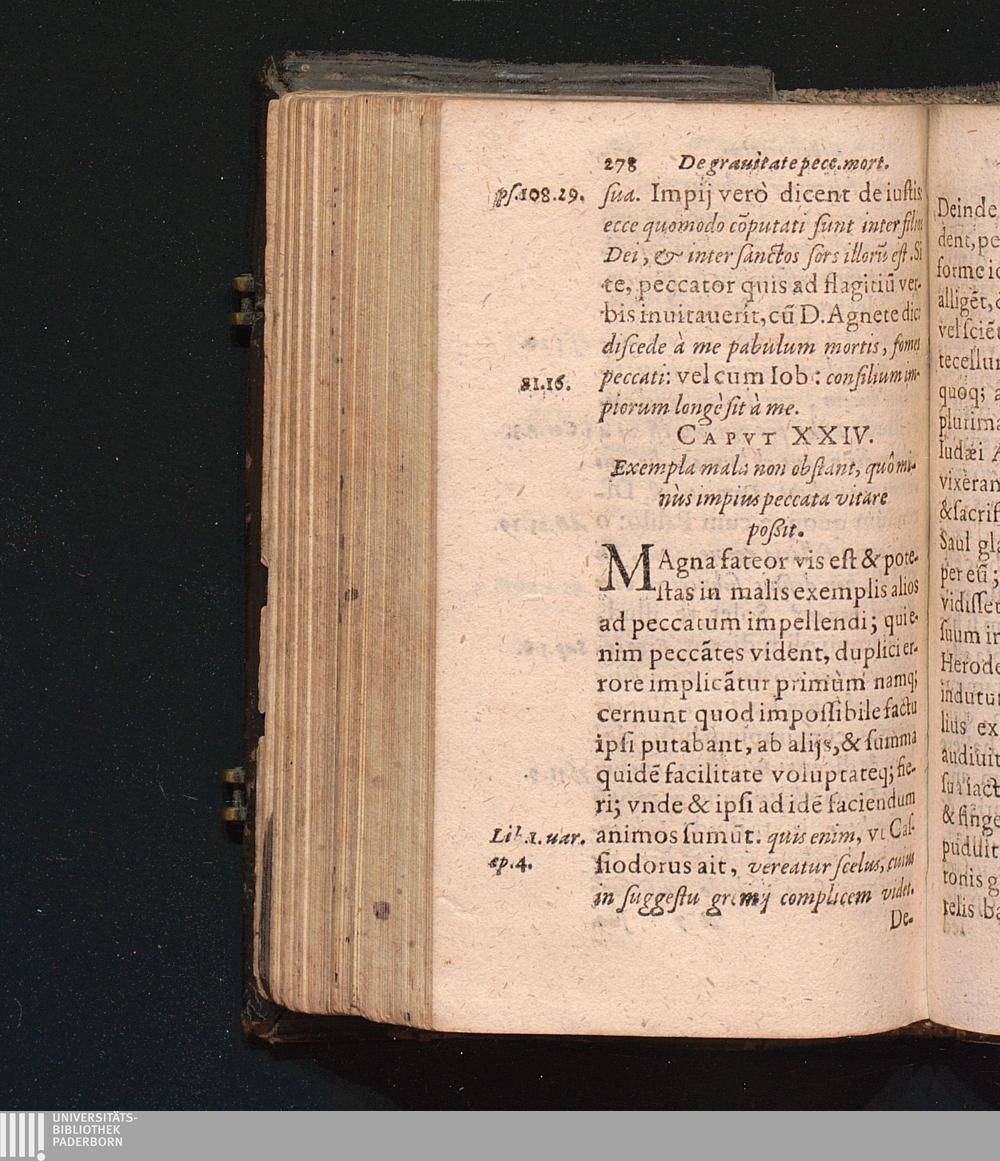 278 De grauitate pecc. mort.
ps. 108. 29.
sua. Impij verò dicent de iustis
ecce quomodo cōputati sunt inter filios
Dei, & inter sanctos sors illorū est. Si
te, peccator quis ad flagitiū ver-
bis inuitauerit, cū D. Agnete dic:
discede à me pabulum mortis, fomes
21.16.
peccati: vel cum Iob: consilium im-
piorum longè sit à me.
CAPVT XXIV.
Exempla mala non obstant, quô mi-
nùs impius peccata vitare
possit.
MAgna fateor vis est & pote-
stas in malis exemplis alios
ad peccatum impellendi; qui e-
nim peccātes vident, duplici er-
rore implicātur primùm namq;
cernunt quod impossibile factu
ipsi putabant, ab alijs, & summa
quidē facilitate voluptateq; fie-
ri; vnde & ipsi ad idē faciendum
Lib. 1. uar.
animos sumūt. quis enim, vt Cas-
ep. 4.
siodorus ait, vereatur scelus, cuius
in suggestu gremij complicem videt.
De-
Deinde
dent, pe
forme id
alligēt, c
vel sciēt
tecellur
quoq; a
plurima
Iudæi A
vixeran
& sacrif
Saul gla
per eū;
vidisset
suum in
Herode
indutur
lius ex
audiuit
sua iact
& finge
puduit
tonis g
telis ba
UNIVERSITÄTS-
BIBLIOTHEK
PADERBORN